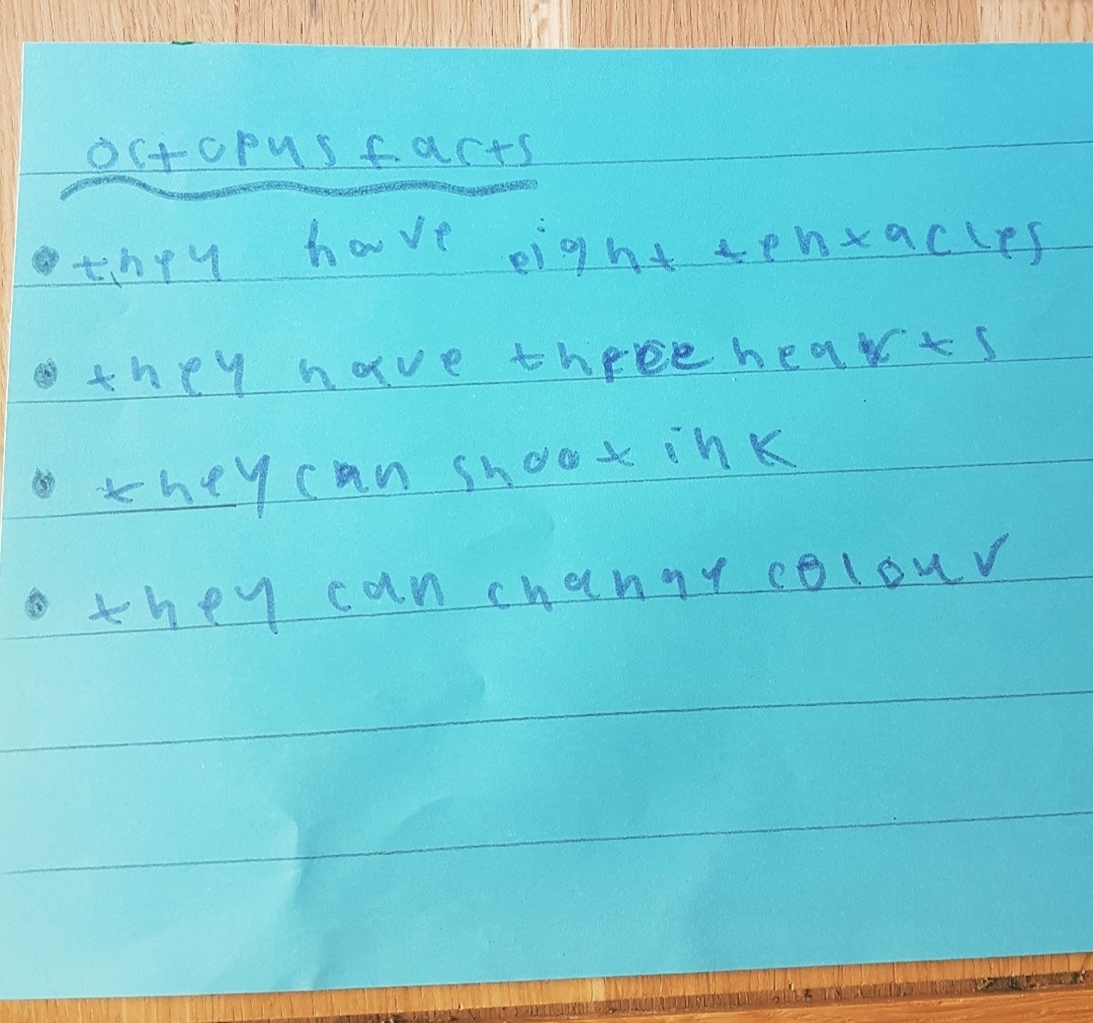 octopus facts
• they have eight tentacles
• they have three hearts
• they can shoot ink
• they can change colour